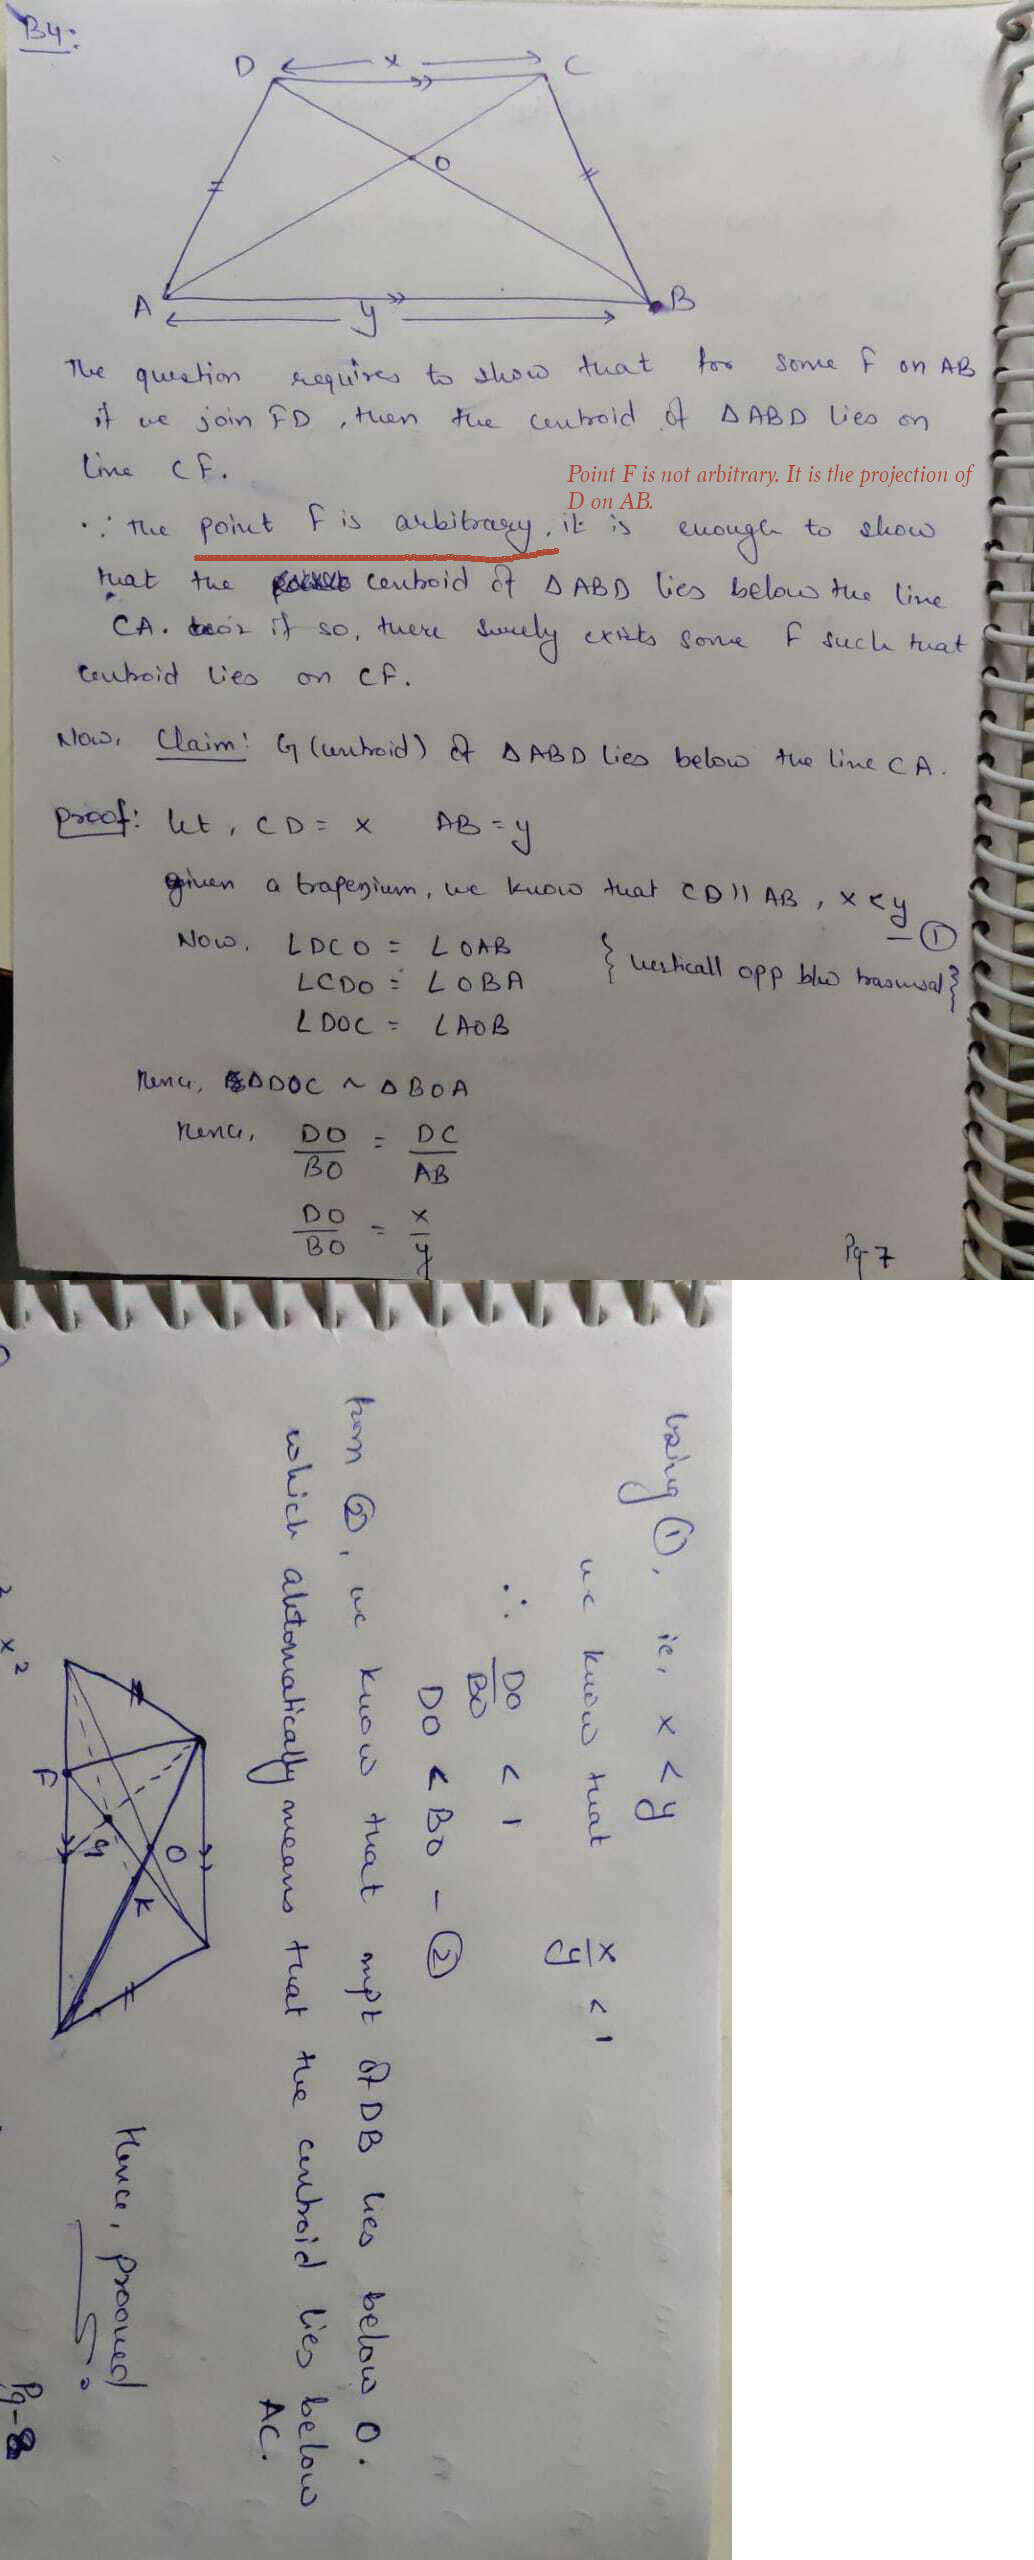 B4:
D x C
O
A y B
The question requires to show that for some F on AB
if we join FD, then the centroid of △ABD lies on
line CF.
Point F is not arbitrary. It is the projection of
D on AB.
∵ the point F is arbitrary, it is enough to show
that the centroid of △ABD lies below the line
CA. if so, there surely exists some F such that
centroid lies on CF.
Now, Claim: G (centroid) of △ABD lies below the line CA.
Proof: let, CD = x AB = y
given a trapezium, we know that CD || AB, x < y
— ①
Now, ∠DCO = ∠OAB
∠CDO = ∠OBA
∠DOC = ∠AOB
{ verticall opp }
Hence, △DOC ~ △BOA
Hence, DO/BO = DC/AB
DO/BO = x/y
Pg-7
Using ①, ie, x < y
we know that x/y < 1
∴ DO/BO < 1
DO < BO – ②
from ②, we know that mpt of DB lies below O.
which automatically means that the centroid lies below
AC.
O
K
G
F
x²
Hence, prooved
Pg-8